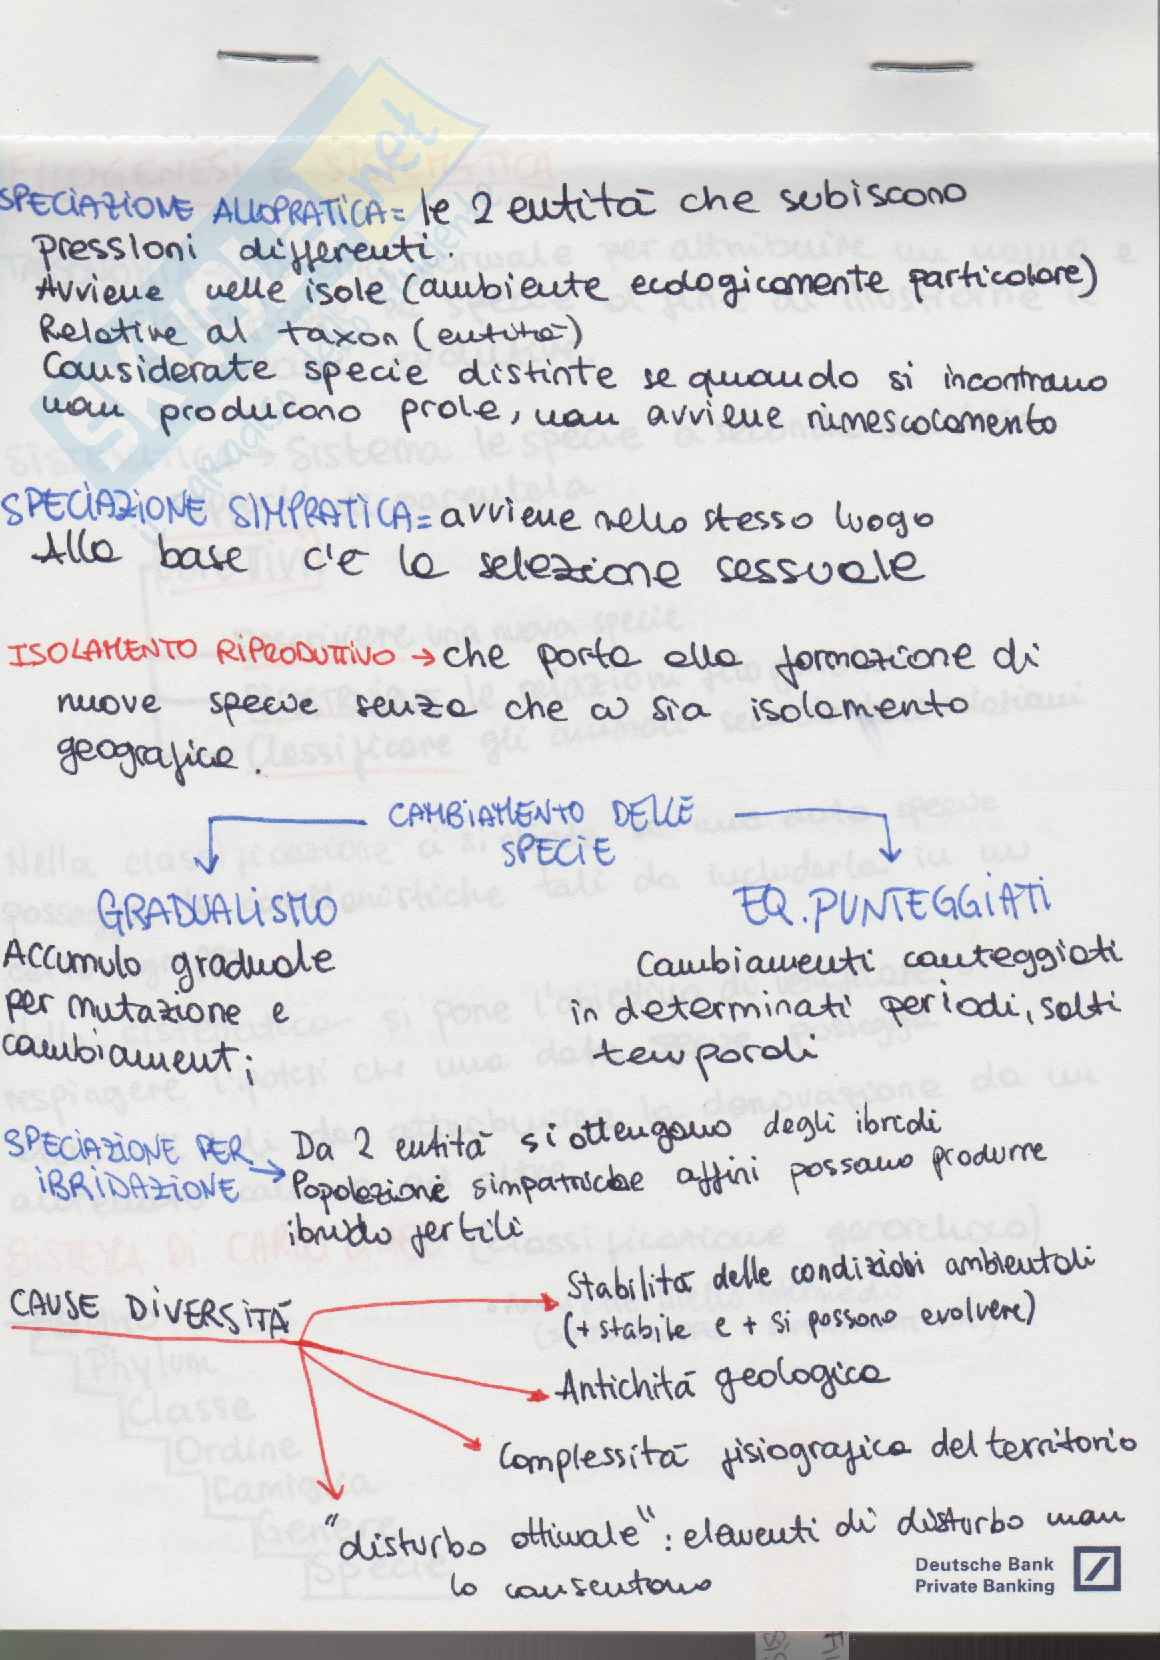 SPECIAZIONE ALLOPRATICA = le 2 entità che subiscono
pressioni differenti.
Avviene nelle isole (ambiente ecologicamente particolare)
Relative al taxon (entità)
Considerate specie distinte se quando si incontrano
non producono prole, non avviene rimescolamento
SPECIAZIONE SIMPRATICA = avviene nello stesso luogo
Alla base c'è la selezione sessuale
ISOLAMENTO RIPRODUTTIVO → che porta alla formazione di
nuove specie senza che ci sia isolamento
geografico.
CAMBIAMENTO DELLE
SPECIE
GRADUALISTICO
EQ. PUNTEGGIATI
Accumulo graduale
per mutazione e
cambiamenti;
Cambiamenti conteggiati
in determinati periodi, salti
temporali
SPECIAZIONE PER
IBRIDAZIONE →
Da 2 entità si ottengono degli ibridi
Popolazioni simpatriche affini possono produrre
ibrido fertili
CAUSE DIVERSITÀ
Stabilità delle condizioni ambientali
(+ stabile e + si possono evolvere)
Antichità geologica
Complessità fisiografica del territorio
"disturbo ottimale": elementi di disturbo non
lo consentono
Deutsche Bank
Private Banking
SKUOLA.net